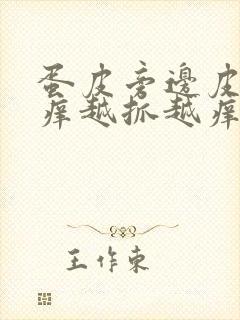 蛋皮旁邊皮
痒越抓越痒
王作東